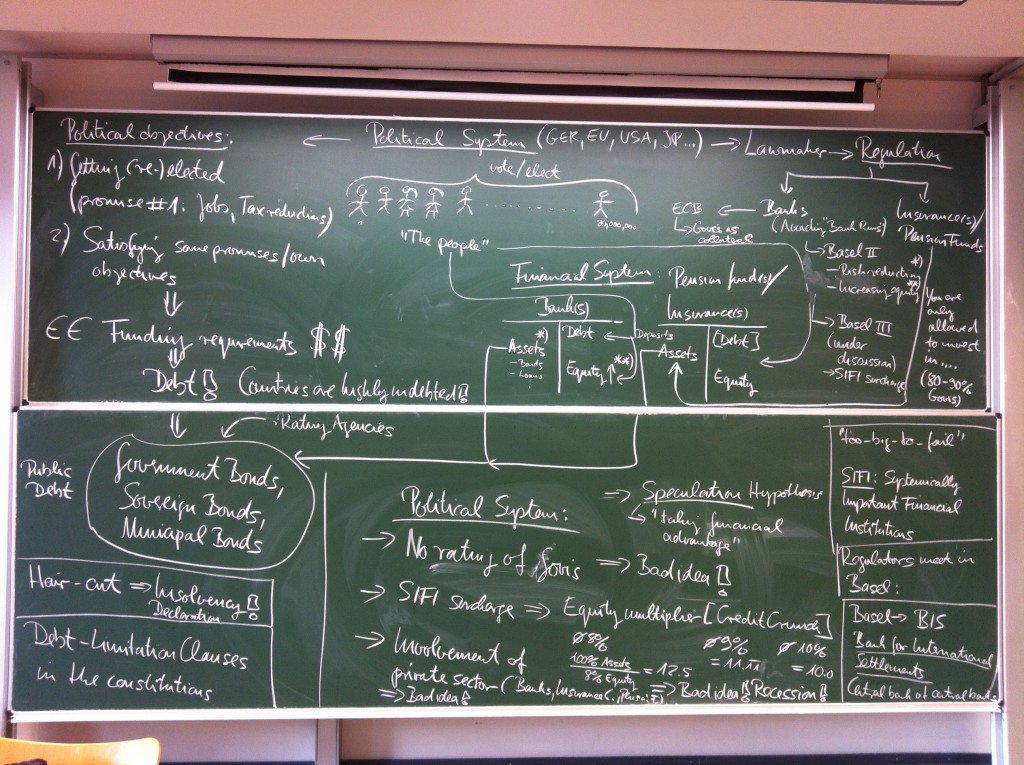 Political objectives:
1) Getting (re-)elected
(promise #1: Jobs, Tax reductions)
2) Satisfying some promises/own
objectives
€€ Funding requirements $$
Debt! (Countries are highly indebted!)
← Political System (GER, EU, USA, JP...) → Lawmaker → Regulation
vote/elect
1
"The people"
ECB ← Banks
(According "Bank Runs")
Govies as
collateral
Basel II
- Risk reduction *)
- Increasing equity **)
Basel III
(under
discussion)
→ SIFI surcharge
Insurance(s)/
Pension Funds
You are
only
allowed
to invest
in....
(80-90%
Govis)
Financial System: Pension funds/
Bank(s) Insurance(s)
Assets *)
- Bonds
- Loans
Debt ← Deposits
Equity ↑ **)
Assets
[Debt]
Equity
Rating Agencies
Public
Debt
Government Bonds,
Sovereign Bonds,
Municipal Bonds
Hair-cut ⇒ Insolvency!
Declaration
Debt-Limitation Clauses
in the constitutions
Political System:
⇒ Speculation Hypothesis
"taking financial
advantage"
→ No rating of Govis ⇒ Bad idea!
→ SIFI surcharge ⇒ Equity multiplier [Credit Crunch]
Ø 8% Ø 9% Ø 10%
100% Assets / 8% Equity = 12.5 = 11.11 = 10.0
→ Involvement of
private sector (Banks, Insurance
⇒ Bad idea!
⇒ Bad idea! Recession!
"too-big-to-fail"
SIFI: Systemically
Important Financial
Institutions
Regulators meet in
Basel:
Basel → BIS
Bank for International
Settlements
Central bank of central banks